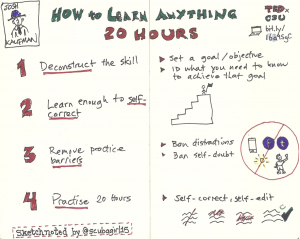 JOSH
KAUFMAN
HOW to LEARN ANYTHING
20 HOURS
TEDx
CSU
bit.ly/
1 Deconstruct the skill
▸ Set a goal/objective
▸ ID what you need to know
to achieve that goal
2 Learn enough to self-
correct
3 Remove practice
barriers
▸ Ban distractions
▸ Ban self-doubt
f t
4 Practise 20 hours
▸ Self-correct, self-edit
sketchnoted by @scubagirl15